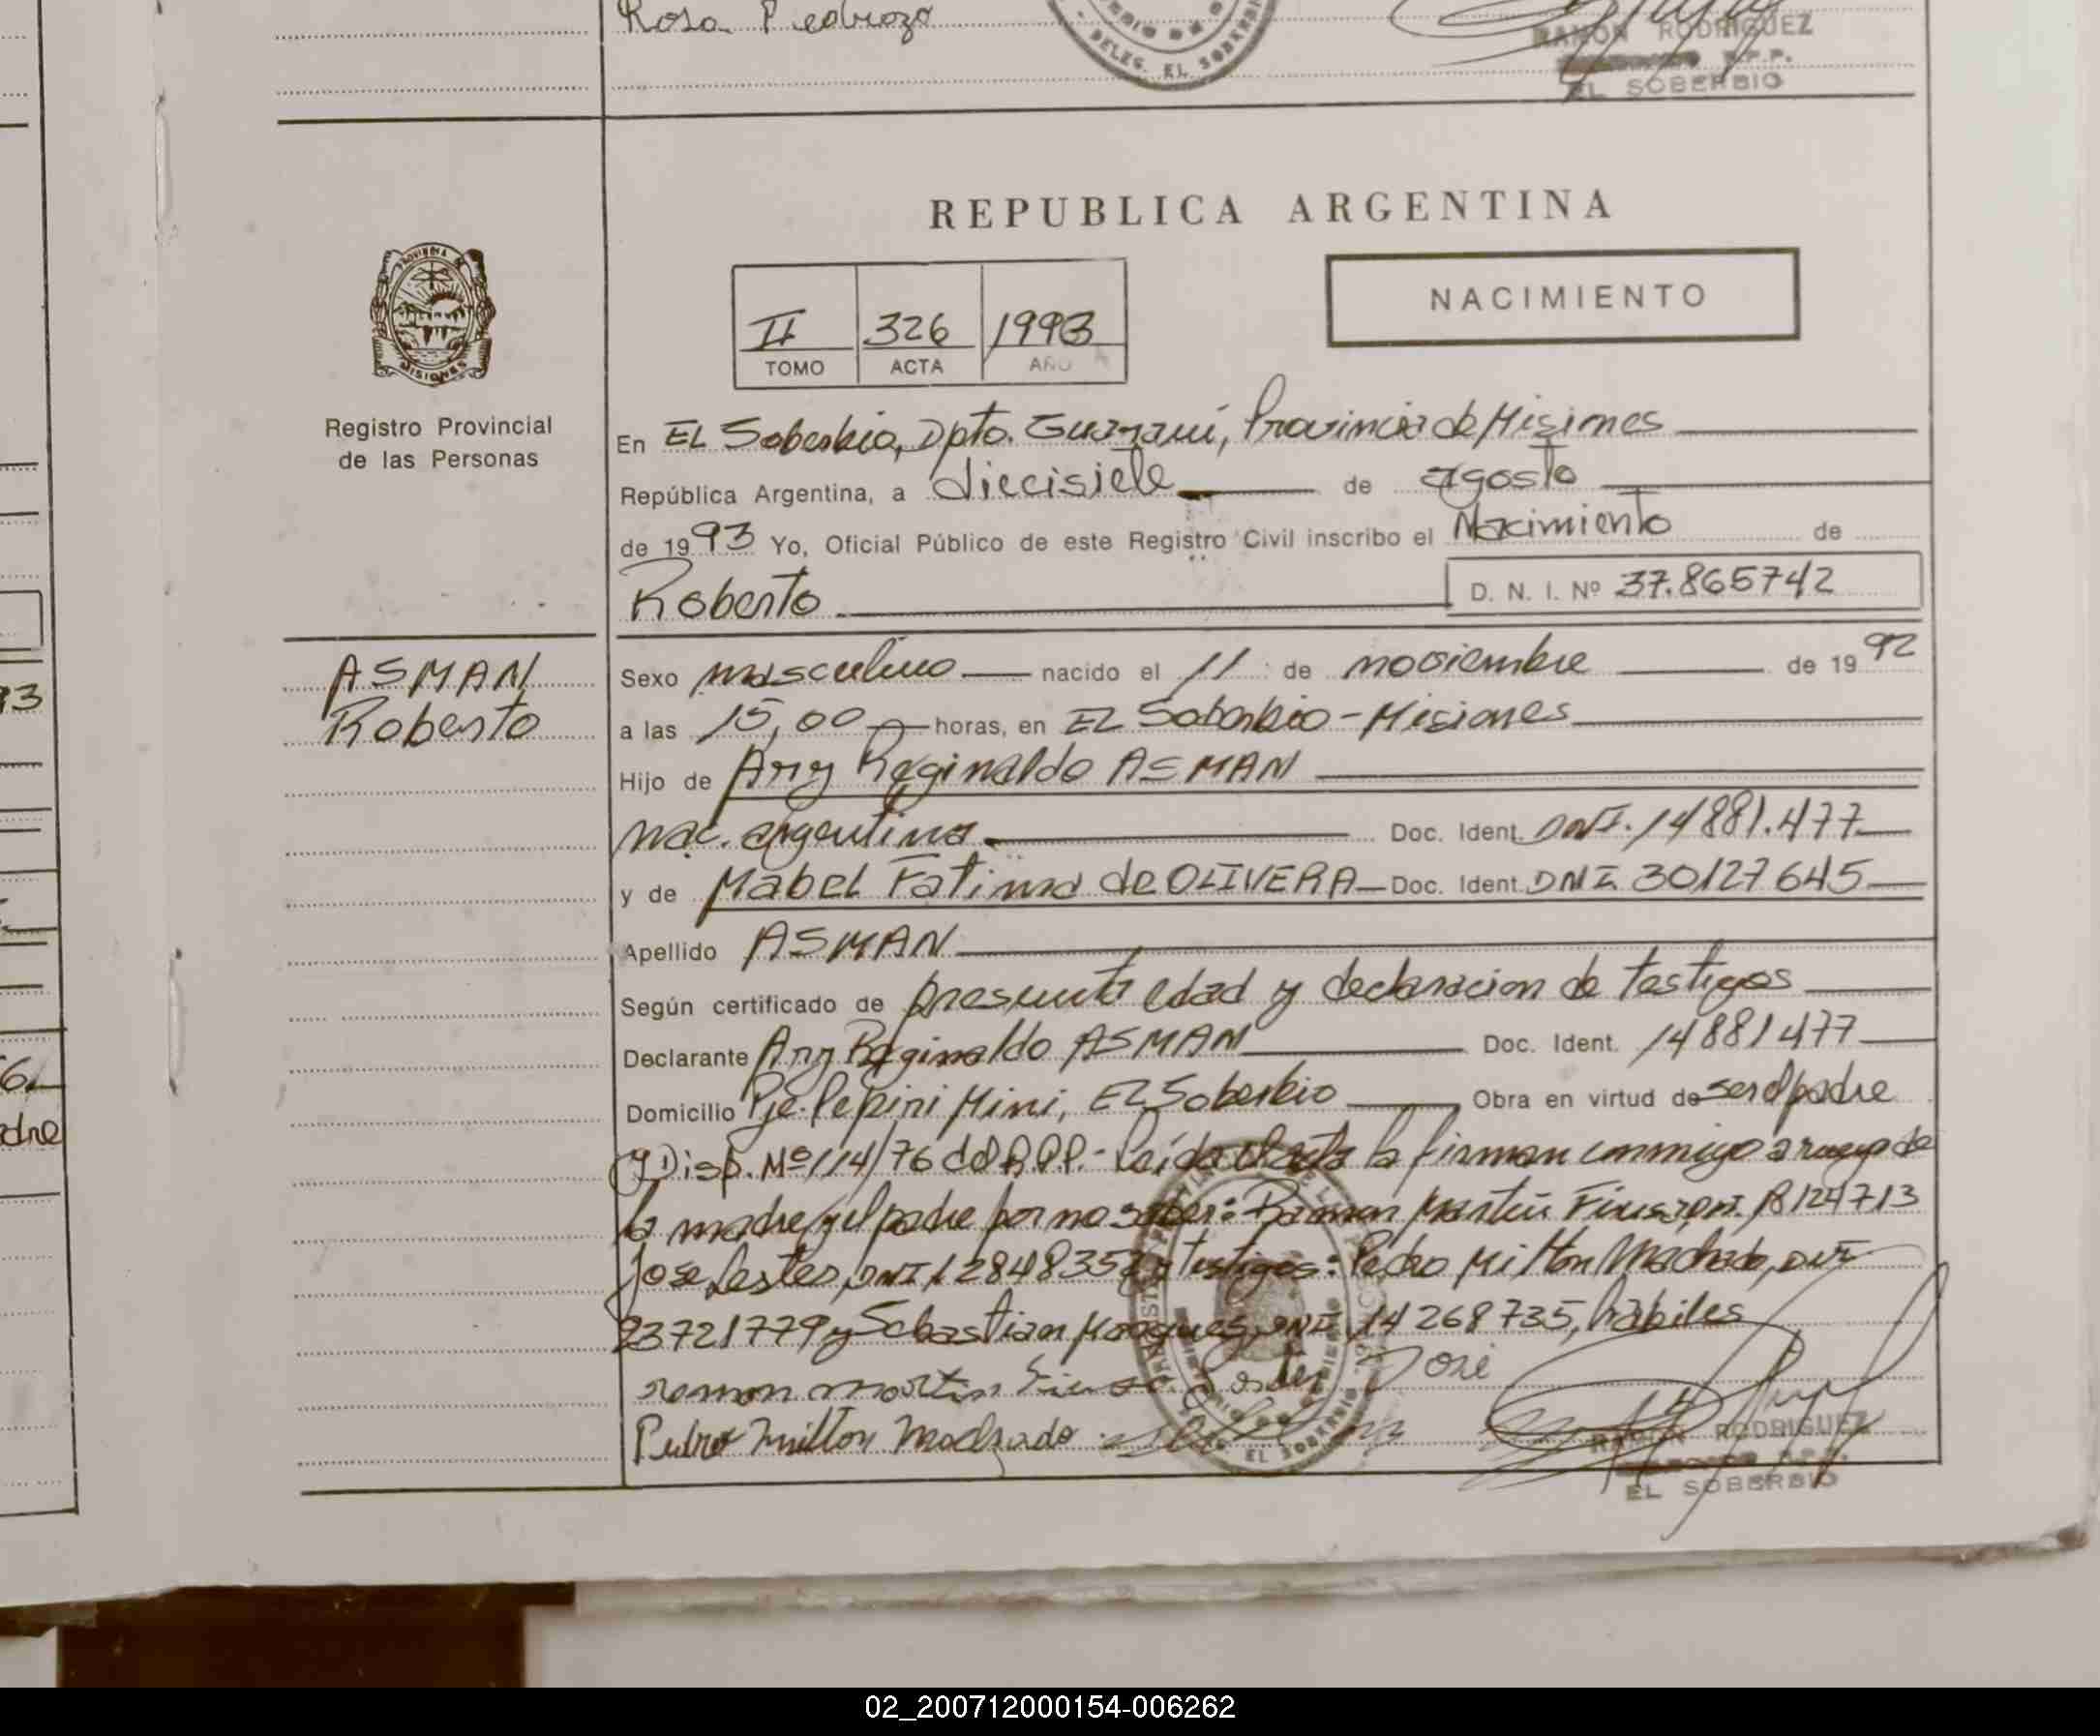 Rosa Pedrozo
DELEG. EL SOBERBIO
RAMON RODRIGUEZ
R.P.P.
EL SOBERBIO
REPUBLICA ARGENTINA
PROVINCIA DE
MISIONES
II 326 1993
TOMO ACTA AÑO
NACIMIENTO
Registro Provincial
de las Personas
En EL Soberbio, Dpto. Guaraní, Provincia de Misiones
República Argentina, a diecisiete de agosto
de 1993 Yo, Oficial Público de este Registro Civil inscribo el Nacimiento de
Roberto D. N. I. Nº 37.865742
ASMAN
Roberto
Sexo masculino nacido el 11 de noviembre de 1992
a las 15,00 horas, en EL Soberbio - Misiones
Hijo de Ary Reginaldo ASMAN
nac. argentina. Doc. Ident. DNI. 14881.477
y de Mabel Fatima de OLIVERA Doc. Ident. DNI 30127645
Apellido ASMAN
Según certificado de presunta edad y declaracion de testigos
Declarante Ary Reginaldo ASMAN Doc. Ident. 14881477
Domicilio Pje. Pepiri Mini, EL Soberbio Obra en virtud de ser el padre
y Disp. Nº 114/76 del R.P.P.- Leída el acta la firman conmigo a ruego de
la madre y el padre por no saber: Ramon Martin 8124713
Jose Lestes, DNI 12848353 y testigos: Pedro Milton Machado, DNI
23721779 y Sebastian DNI 14268735, hábiles
ramon martin José
Pedro milton Machado
EL SOBERBIO
RAMON RODRIGUEZ
R.P.P.
EL SOBERBIO
93
6.
dre
02_200712000154-006262